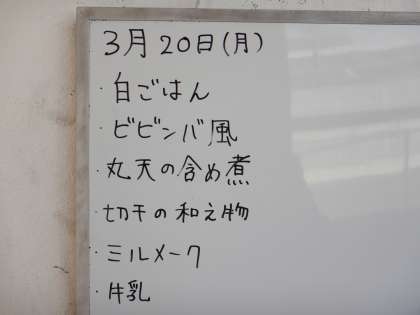 3月20日(月)
・白ごはん
・ビビンバ風
・丸天の含め煮
・切干の和え物
・ミルメーク
・牛乳